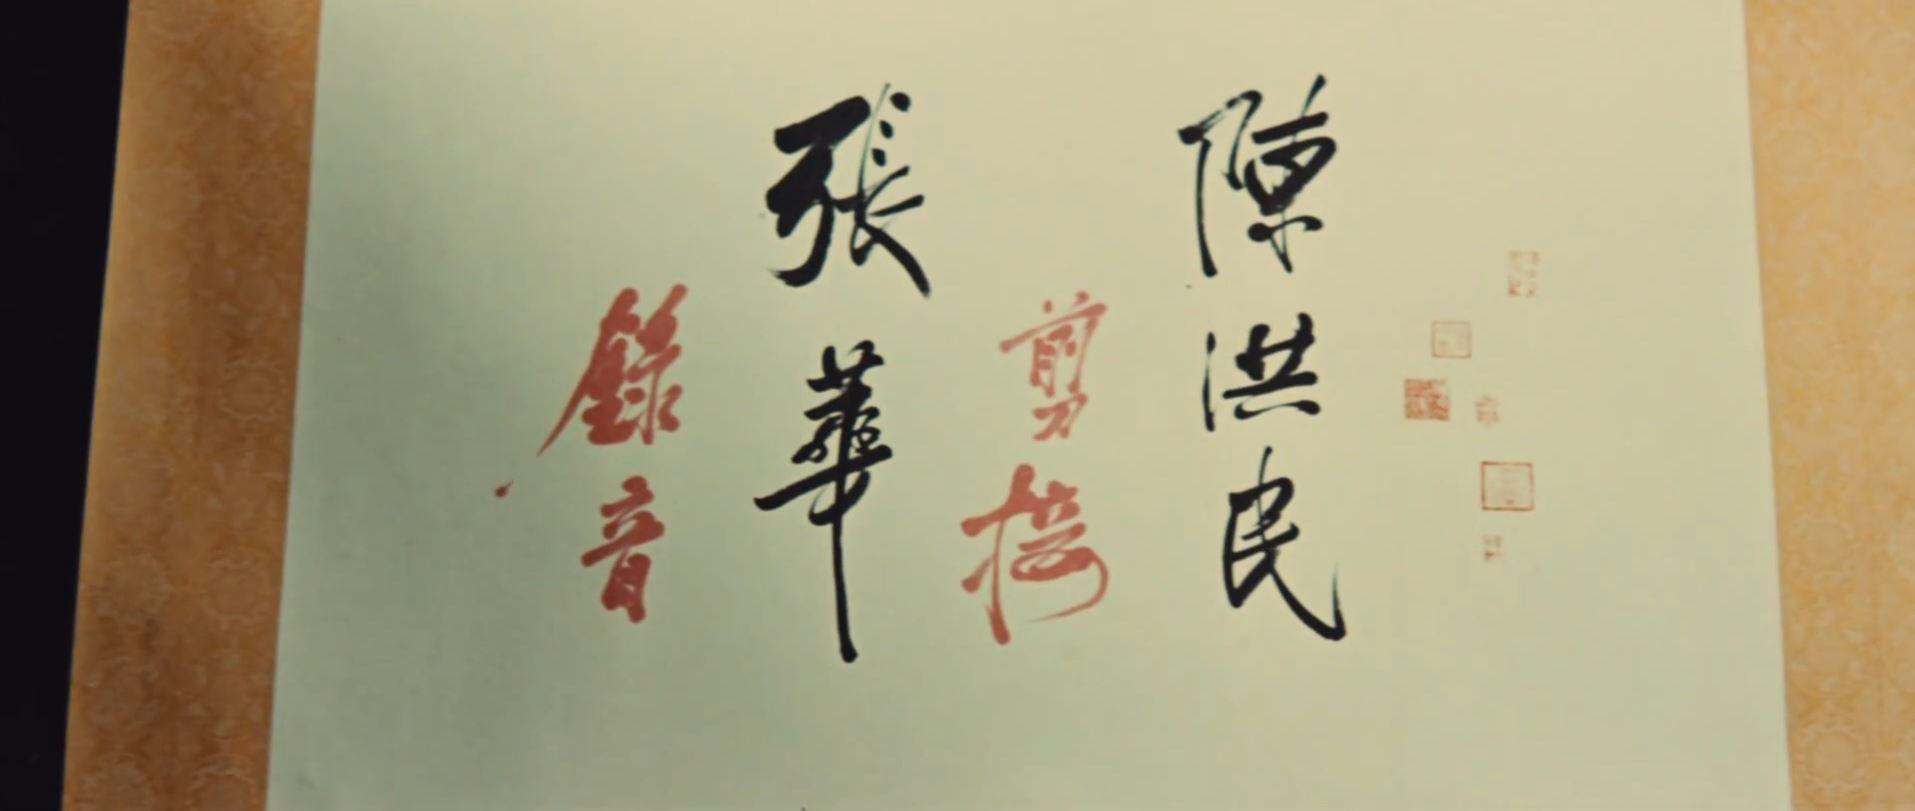 陳洪民
剪接
張華
錄音